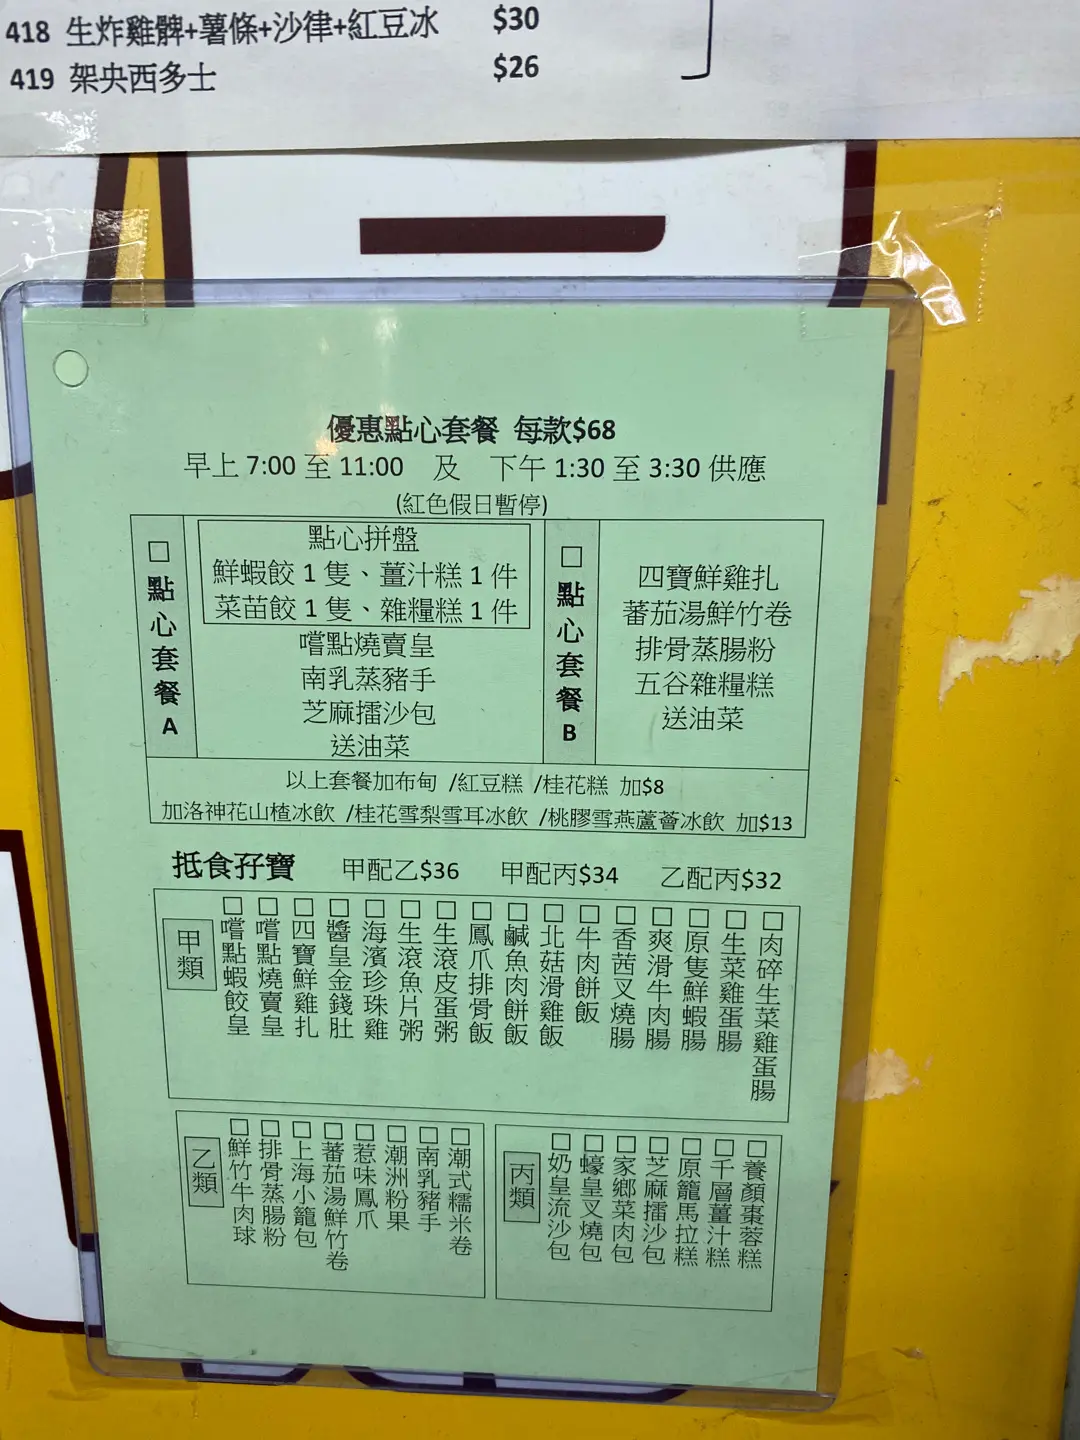 418 生炸雞髀+薯條+沙律+紅豆冰 $30
419 架央西多士 $26
優惠點心套餐 每款$68
早上 7:00 至 11:00 及 下午 1:30 至 3:30 供應
(紅色假日暫停)
□點心套餐A
點心拼盤
鮮蝦餃 1 隻、薑汁糕 1 件
菜苗餃 1 隻、雜糧糕 1 件
嚐點燒賣皇
南乳蒸豬手
芝麻擂沙包
送油菜
□點心套餐B
四寶鮮雞扎
蕃茄湯鮮竹卷
排骨蒸腸粉
五谷雜糧糕
送油菜
以上套餐加布甸 /紅豆糕 /桂花糕 加$8
加洛神花山楂冰飲 /桂花雪梨雪耳冰飲 /桃膠雪燕蘆薈冰飲 加$13
抵食孖寶 甲配乙$36 甲配丙$34 乙配丙$32
甲類
□嚐點蝦餃皇
□嚐點燒賣皇
□四寶鮮雞扎
□醬皇金錢肚
□海濱珍珠雞
□生滾魚片粥
□生滾皮蛋粥
□鳳爪排骨飯
□鹹魚肉餅飯
□北菇滑雞飯
□牛肉餅飯
□香茜叉燒腸
□爽滑牛肉腸
□原隻鮮蝦腸
□生菜雞蛋腸
□肉碎生菜雞蛋腸
乙類
□鮮竹牛肉球
□排骨蒸腸粉
□上海小籠包
□蕃茄湯鮮竹卷
□惹味鳳爪
□潮洲粉果
□南乳豬手
□潮式糯米卷
丙類
□奶皇流沙包
□蠔皇叉燒包
□家鄉菜肉包
□芝麻擂沙包
□原籠馬拉糕
□千層薑汁糕
□養顏棗蓉糕